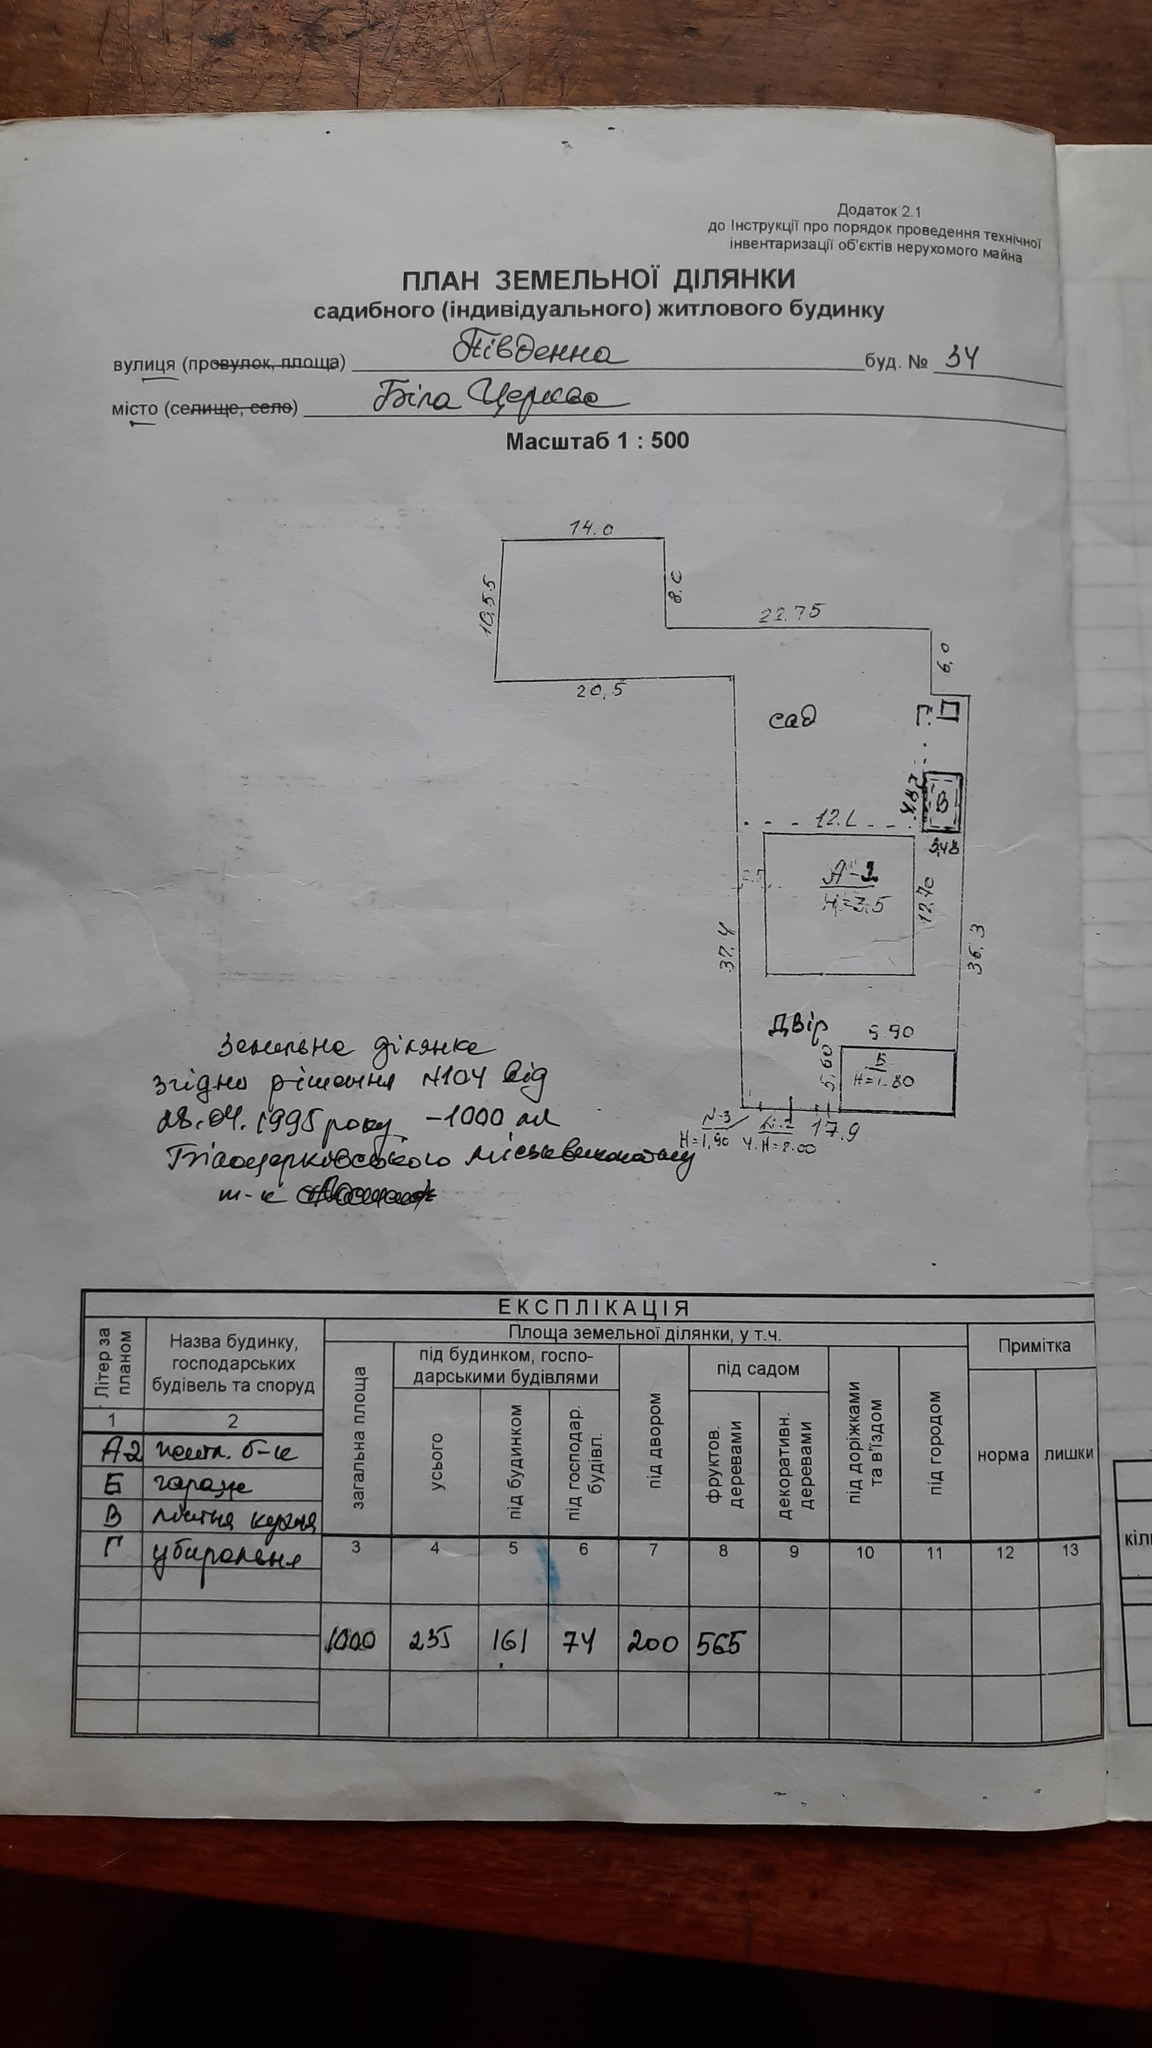 Додаток 2.1
до Інструкції про порядок проведення технічної
інвентаризації об'єктів нерухомого майна
ПЛАН ЗЕМЕЛЬНОЇ ДІЛЯНКИ
садибного (індивідуального) житлового будинку
вулиця (провулок, площа) Південна буд. № 34
місто (селище, село) Біла Церква
Масштаб 1 : 500
14.0
10.55
8.0
22.75
6,0
20,5
сад
4.87
В
12.
3,48
А-2
Н=3.5
12.70
37.4
36.3
Двір
9.90
5,60
Б
Н=1.80
N-3
Н=1,90
N-2
Ч.Н=2.00
17.9
Земельна ділянка
згідно рішення N104 від
28.04.1995 року -1000 м
Білоцерківського міськвиконкому
ЕКСПЛІКАЦІЯ
Літер за планом
Назва будинку, господарських будівель та споруд
Площа земельної ділянки, у т.ч.
Примітка
загальна площа
під будинком, госпо-
дарськими будівлями
усього
під будинком
під господар. будівл.
під двором
під садом
фруктов. деревами
декоративн. деревами
під доріжками та в'їздом
під городом
норма
лишки
1 2
А2 житл. б-к
Б гараж
В літня кухня
Г убиральня
3 4 5 6 7 8 9 10 11 12 13
1000 235 161 74 200 565
кіль